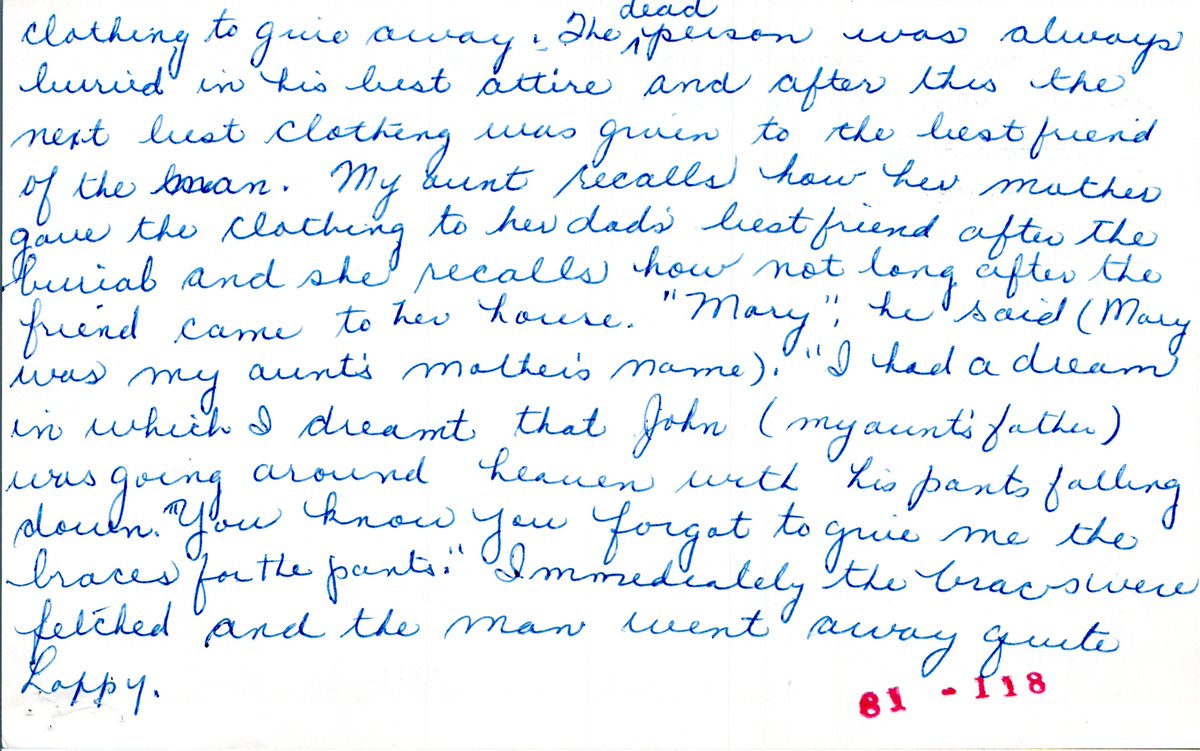 clothing to give away. The dead person was always
buried in his best attire and after this the
next best clothing was given to the best friend
of the man. My aunt recalls how her mother
gave the clothing to her dad's best friend after the
burial and she recalls how not long after the
friend came to her house. "Mary", he said (Mary
was my aunt's mother's name). "I had a dream
in which I dreamt that John (my aunt's father)
was going around heaven with his pants falling
down. "You know you forgot to give me the
braces for the pants." Immediately the braces were
fetched and the man went away quite
happy.
81-118